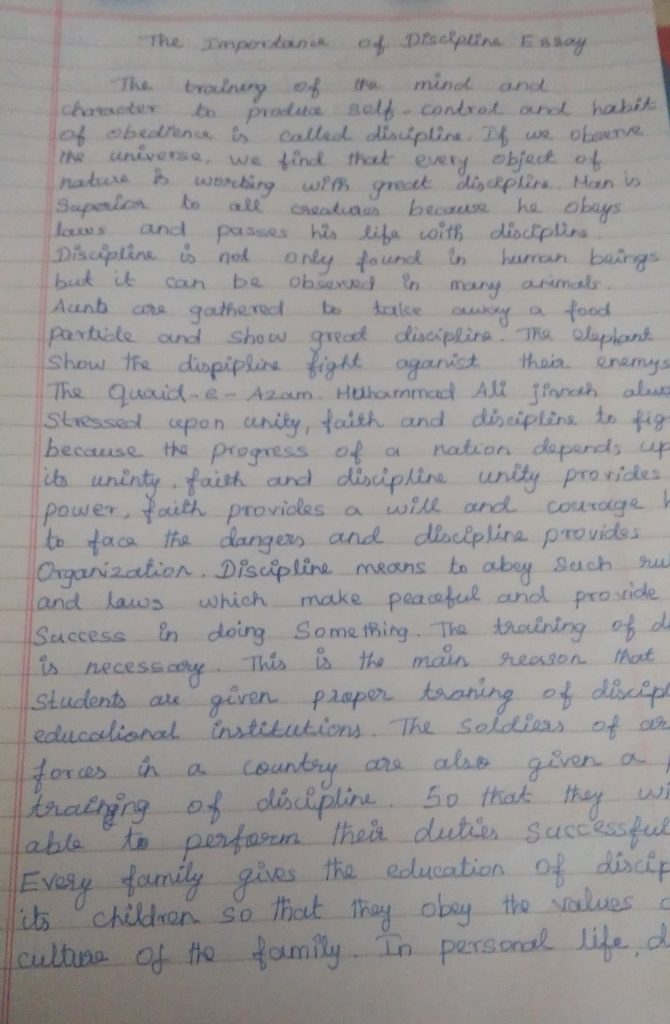 The Importance of Discipline Essay
The training of the mind and
character to produce self-control and habit
of obedience is called discipline. If we observe
the universe, we find that every object of
nature is working with great discipline. Man is
Superior to all creatures because he obeys
laws and passes his life with discipline.
Discipline is not only found in human beings
but it can be observed in many animals.
Aunts are gathered to take away a food
particle and show great discipline. The elephant
Show the dispipline fight aganist their enemys
The Quaid-e-Azam. Muhammad Ali jinnah
Stressed upon unity, faith and discipline to
because the progress of a nation depends up
its uninty, faith and discipline unity provides
power, faith provides a will and courage
to face the dangers and discipline provides
Organization. Discipline means to abey Such
and laws which make peaceful and provide
Success in doing Something. The training of
is necessary. This is the main reason that
Students are given proper traning of
educational institutions. The Soldiers of
forces in a country are also given a
training of discipline. So that they
able to perform their duties
Every family gives the education of
its children so that they obey the values
culture of the family. In personal life,